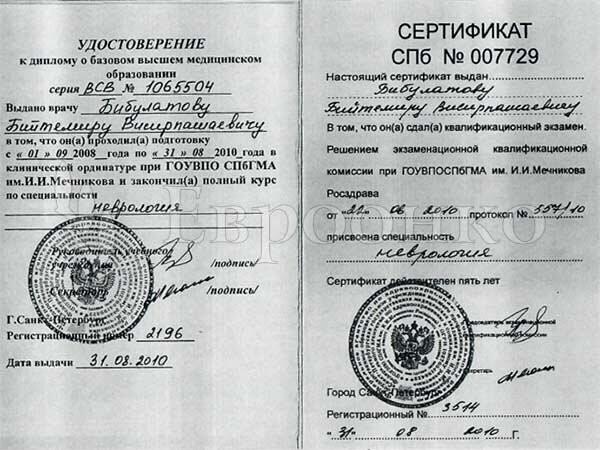 УДОСТОВЕРЕНИЕ
к диплому о базовом высшем медицинском
образовании
серия ВСВ № 1065504
Выдано врачу Бибулатову
Бийтемиру Висирпашаевичу
в том, что он(а) проходил(а) подготовку
с «01» 09 2008 года по «31» 08 2010 года в
клинической ординатуре при ГОУВПО СПбГМА
им.И.И.Мечникова и закончил(а) полный курс
по специальности
неврология
Руководитель учебного
учреждения /подпись/
Секретарь /подпись/
Г.Санкт-Петербург
Регистрационный номер 2196
Дата выдачи 31.08.2010
СЕРТИФИКАТ
СПб № 007729
Настоящий сертификат выдан Бибулатову
Бийтемиру Висирпашаевичу
В том, что он(а) сдал(а) квалификационный экзамен.
Решением экзаменационной квалификационной
комиссии при ГОУВПОСПбГМА им. И.И.Мечникова
Росздрава
от "22" 06 2010 протокол № 557/10
присвоена специальность
неврология
Сертификат действителен пять лет
Председатель экзаменационной
квалификационной комиссии
Секретарь
Город Санкт-Петербург
Регистрационный № 3514
"31" 08 2010 г.